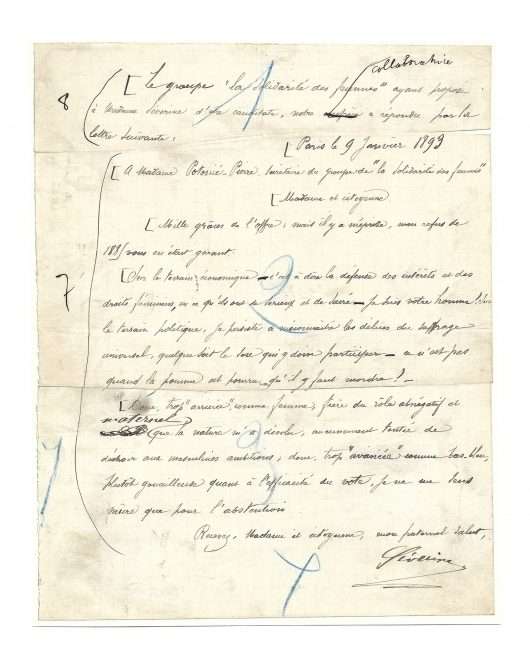 collaboratrice
8 [Le groupe "la Solidarité des femmes" ayant proposé
à Madame Séverine d'être candidate, notre a répondu par la
lettre suivante :
[Paris le 9 Janvier 1893
[A Madame Potonié-Pierre, secrétaire du groupe de "la Solidarité des femmes"
[Madame et citoyenne
[Mille grâces de l'offre ; mais il y a méprise, mon refus de
1885 vous en était garant.
7 [Sur le terrain économique — c'est à dire la défense des intérêts et des
droits féminins, en ce qu'ils ont de sérieux et de sacré — je suis votre homme ! Sur
le terrain politique, je persiste à méconnaître les délices du suffrage
universel, quelque soit le sexe qui y doive participer — ce n'est pas
quand la pomme est pourrie qu'il y faut mordre ! —
[Donc, trop "arriérée" comme femme, fière du rôle abnégatif et
maternel
que la nature m'a dévolu, aucunement tentée de
déchoir aux masculines ambitions ; donc, trop "avancée" comme bas-bleu,
plutôt gouailleuse quant à l'efficacité du vote, je ne me sens
mûre que pour l'abstention.
Recevez, Madame et citoyenne, mon fraternel salut,
Séverine
1
2
3